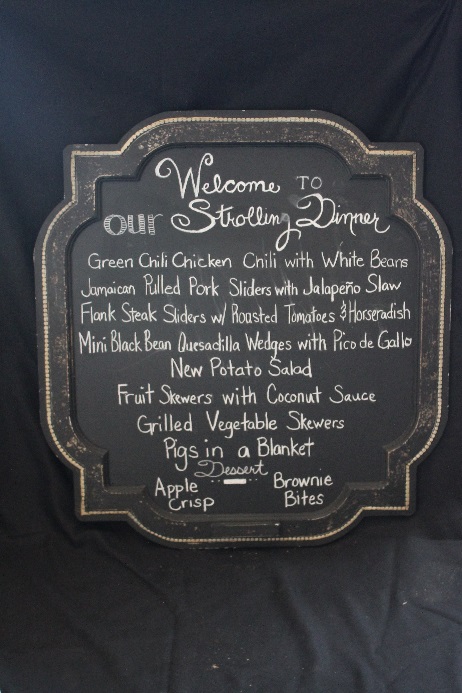 Welcome TO
our Strolling Dinner
Green Chili Chicken Chili with White Beans
Jamaican Pulled Pork Sliders with Jalapeño Slaw
Flank Steak Sliders w/ Roasted Tomatoes & Horseradish
Mini Black Bean Quesadilla Wedges with Pico de Gallo
New Potato Salad
Fruit Skewers with Coconut Sauce
Grilled Vegetable Skewers
Pigs in a Blanket
Dessert
Apple Crisp
Brownie Bites